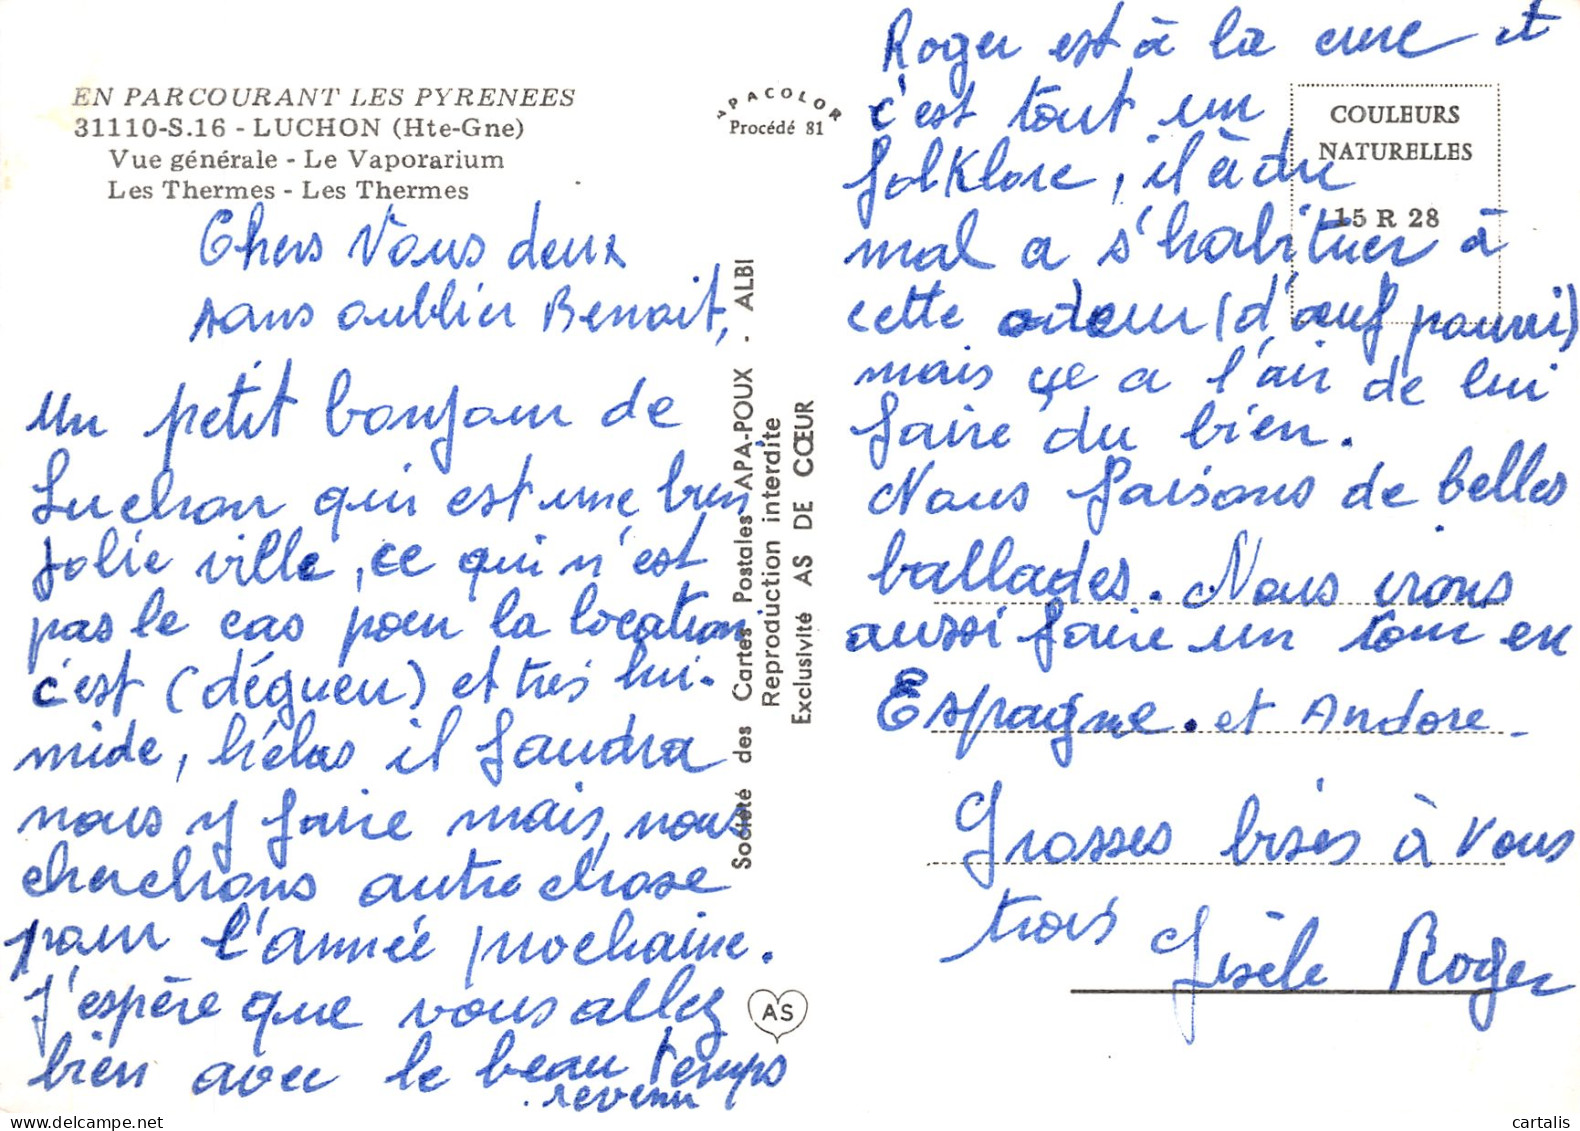 EN PARCOURANT LES PYRENEES
31110-S.16 - LUCHON (Hte-Gne)
Vue générale - Le Vaporarium
Les Thermes - Les Thermes
Chers Vous deux
sans oublier Benoit,
Un petit bonjour de
Luchon qui est une bien
jolie ville, ce qui n'est
pas le cas pour la location
c'est (dégueu) et très hu-
mide, hélas il faudra
nous y faire mais, nous
cherchons autre chose
pour l'année prochaine.
J'espère que vous allez
bien avec le beau temps
revenu
APACOLOR
Procédé 81
Société des Cartes Postales APA-POUX - ALBI
Reproduction interdite
Exclusivité AS DE CŒUR
AS
COULEURS
NATURELLES
15 R 28
Roger est à la cure et
c'est tout un
folklore, il à du
mal a s'habituer à
cette odeur (d'œuf pourri)
mais ça a l'air de lui
faire du bien.
Nous faisons de belles
ballades. Nous irons
aussi faire un tour en
Espagne. et Andore.
Grosses bises à Vous
trois
Gisèle Roger
cartalis